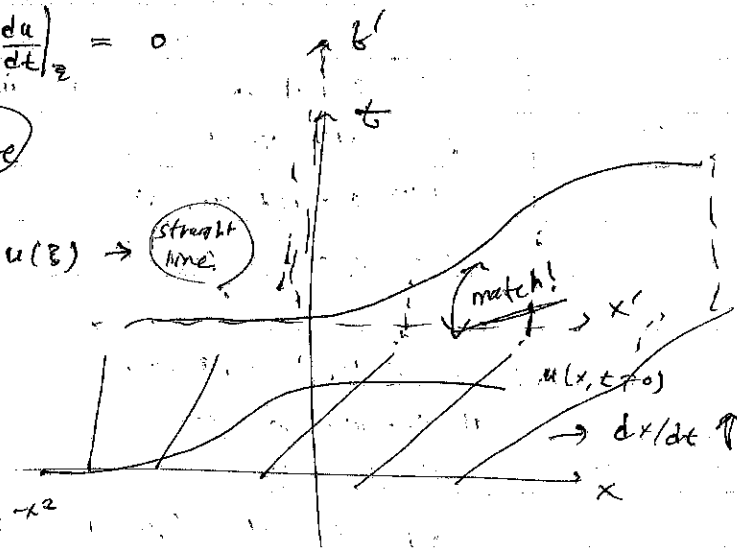 du/dt|ξ = 0
t'
t
u(ξ) → straight line.
match!
x'
u(x, t=0)
→ dx/dt ↑
x
-x²